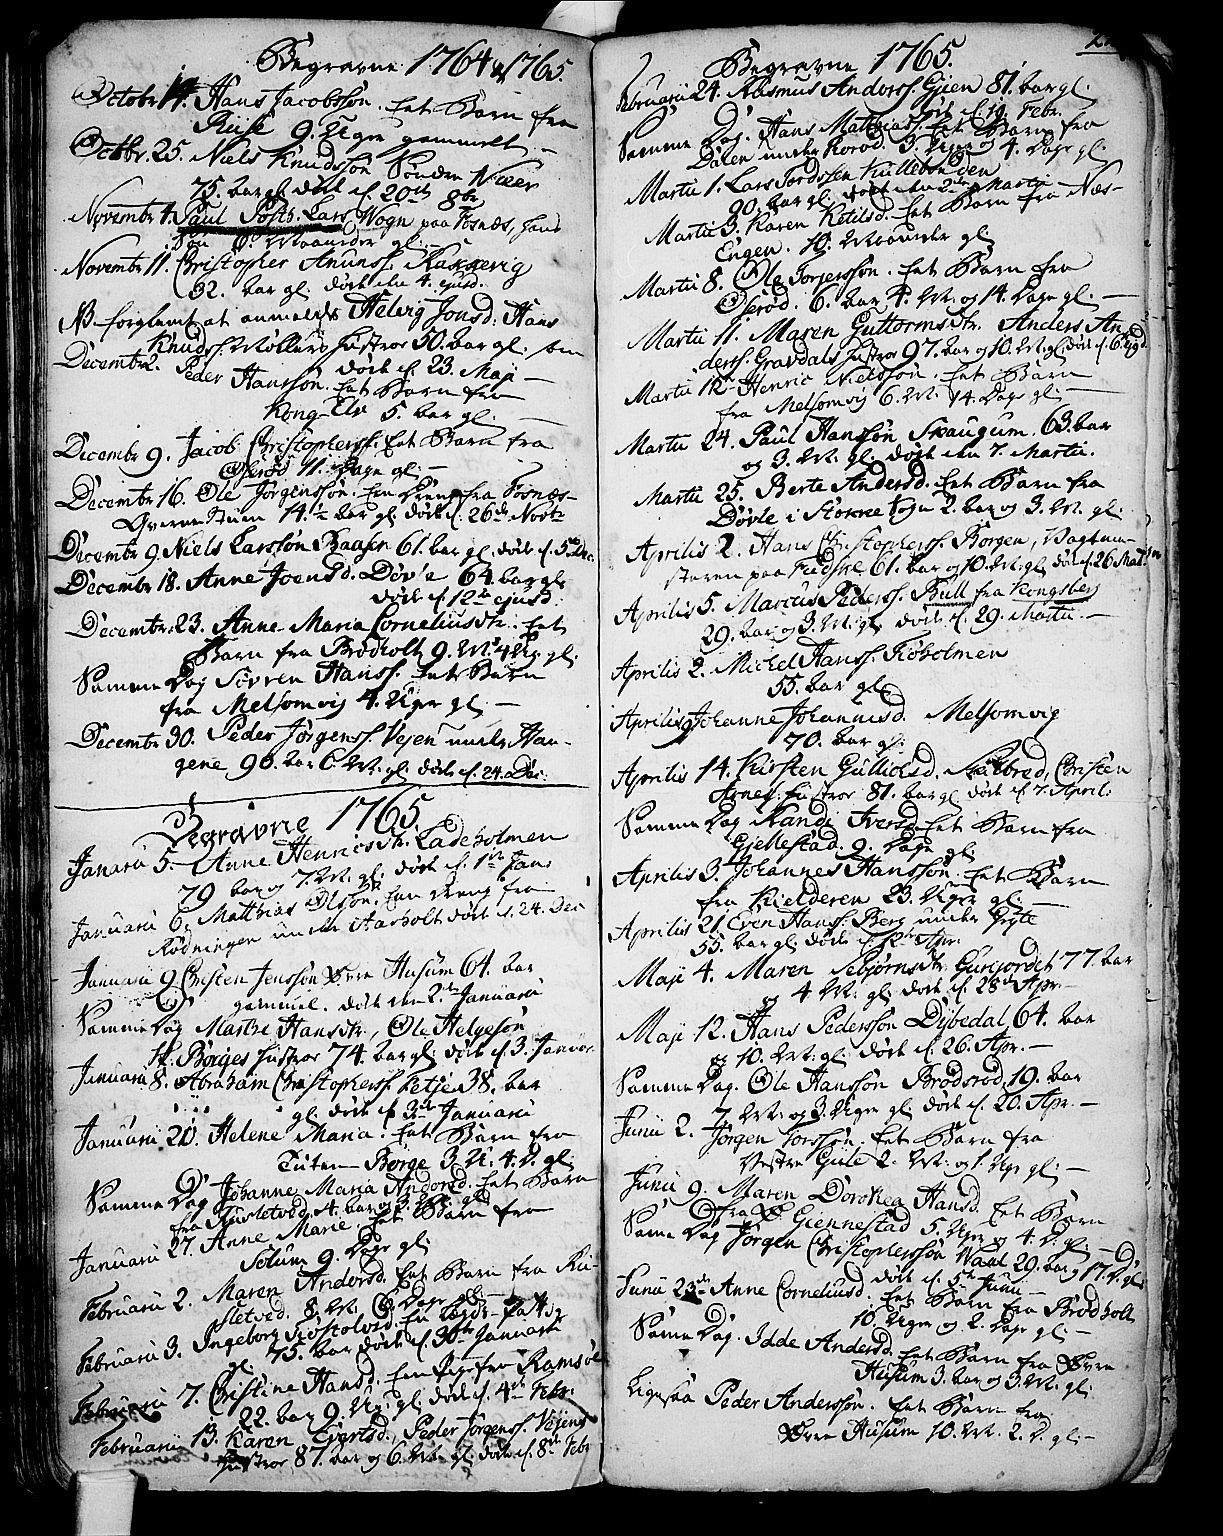 Begravne 1764 & 1765.
Octobr 14. Hans Jacobssøn. Eet Barn fra
Ruse 9. Uger gammelt. —
Octbr. 25. Niels Knudssøn Sønden
75. Aar gl. døde d. 20de 8br.
Novembr 1. Paul Poſts. Lars Wogn paa Fosnæs, hans
Søn 6. Maaneder gl.
Novembr 11. Christopher Amunss. Rakkevig
32. Aar gl. døde den 4. ejusd.
NB forglemt at anmeldes Helvig Jonsd: Hans
Knudss. Møllers hustroe 50. Aar gl: som
døde d. 23. Maji —
Decembr 2. Peder Hanssøn. Eet Barn fra
Kong-Elv 5. Aar gl. —
Decembr 9. Jacob Christopherss. Eet Barn fra
Oserød 11. Dage gl. —
Decembr 16. Ole Jørgenssøn. Een Dreng fra Fosnæs-
Qverne Stuen 14. ½ Aar gl. døde d. 26de Novbr
Decembr 9. Niels Larssøn Baasen 61. Aar gl. døde d. 5. Dec.
Decembr 18. Anne Joensd. Døv'e 64. Aar gl.
døde d. 12te ejusd.
Decembr. 23. Anne Maria Corneliusdtr: Eet
Barn fra Brødholt 9. M. 4 Ug. gl.
Samme Dag Sövren Hanss. Eet Barn
fra Melsomvig 4. Uger gl. —
Decembr 30. Peder Jørgenss. Vejen under Hau-
gene 90. Aar 6. M. gl. døde d. 24. Dec.
Begravne 1765.
Januarii 5. Anne Henricsdtr. Ladeholmen
79 Aar og 7. M. gl. døde d. 1ste Janr
Januarii 6. Matthias Olsøn. Een Dreng fra
Rødningen under Aarholt døde d. 24. Dec
Januarii 9. Christen Jenssøn Øvre Husum 64. Aar
gammel. døde den 2de Januarii
Samme Dag Marthe Hansdtr, Ole Helgesøn
St. Børges hustroe 74. Aar gl: døde d. 3. Januar.
Januarii 8. Abraham Christopherss. Fetje 38. Aar
gl. døde d. 3de Januarii
Januarii 20. Helene Maria. Eet Barn fra
Tuten-Børge 3. U. 4. D. gl.
Samme Dag Johanne Maria Andersd. Eet Barn
fra Ruseltved. 4. Aar og 3. M. gl.
Januarii 27. Anne Marie. Eet Barn fra
Solum 9. Dage gl.
Februarii 2. Maren Andersd. Eet Barn fra Ru-
sletved. 8. M. 6. Dage gl. —
Februarii 3. Ingeborg En Lægds-
gl. 75. Aar døde d. 30te Januarii
Februarii 7. Christine Hansd. Een Pige fra Ramsøe
22. Aar 9. Ug. gl. døde d. 4de Febr.
Februarii 13. Karen Evertsd., Peder Jørgenss. Vejens
hustroe 87. Aar og 6. M. gl. døde d. 8de Febr

Begravne 1765.
Februarii 24. Rasmus Anderss. Gjien 81. Aar gl.
døde d. 19. Febr.
Samme Dag. Hans Matthiass. Eet Barn fra
Dalen under Rorød. 3. Uger og 4. Dage gl.
Martii 1. Lars Tordssøn Kullebonden
90. Aar gl. døde den 2de Martii
Martii 3. Karen Ketilsd. Eet Barn fra Næs-
Engen. 10. Maaneder gl.
Martii 8. Ole Torgerssøn. Eet Barn fra
Oserød. 6. Aar 4. M. og 14. Dage gl. —
Martii 11. Maren Guttormsdtr. Anders An-
derss. Gravdals hustroe 97. Aar og 10. M. gl. døde d. 6. ejusd
Martii 12. Henric Nielssøn. Eet Barn
fra Melsomvig 6. M. 14. Dage gl. —
Martii 24. Paul Hanssøn Skaugum. 63. Aar
og 3. M. gl. døde den 7. Martii.
Martii 25. Berte Andersd. Eet Barn fra
Døvle i Stokke Sogn 2. Aar og 3. M. gl.
Aprilis 2. Hans Christopherss. Borgen,
paa 61. Aar og 10. M. gl. døde d. 26 Mart.
Aprilis 5. Marcus Pederss. Bull fra Kongsberg
29. Aar og 3. M. gl. døde d. 29. Martii —
Aprilis 2. Michel Hanss.
55. Aar gl.
Aprilis 9 Johanne Johannesd. Melsomvig
70. Aar gl.
Aprilis 14. Kirsten Gullichsd. Skilbred, Christen
hustroe 81. Aar gl. døde d. 7. April.
Samme Dag Randi Iversd. Eet Barn fra
Gjellestad. 9. Dage gl.
Aprilis 3. Johannes Hanssøn. Eet Barn
fra Kielderen 23. Uger gl. —
Aprilis 21. Even Hanss. Berg under Gryte
55. Aar gl. døde d. 12te Apr.
Maji 4. Maren Sebjørnsdtr. Gurijordet 77. Aar
og 4. M. gl. døde d. 28de Apr. —
Maji 12. Hans Pederssøn Dybedal, 64. Aar
og 10. M. gl. døde d. 26. Apr. —
Samme Dag. Ole Hanssøn Brødsrød, 19. Aar
7. M. og 3. Uger gl. døde d. 20. Apr. —
Junii 2. Jørgen Lorssøn. Eet Barn fra
Vestre Giile 2. M. og 1. Uge gl. —
Junii 9. Maren Dorothea Hansd. Eet Barn
fra Ø. Giennestad 5. Uger og 4. D. gl. —
Same Dag Jørgen Christopherssøn Waal 29. Aar og 17. D. gl.
døde d. 5te Junii —
Junii 23de Anne Corneliusd. Eet Barn fra Brødholt
10. Uger og 2. Dage gl. —
Same Dag. Idde Andersd. Eet Barn fra Øvre
Husum 3. Aar og 3. M. gl.
Ligesaa Peder Anderssøn. Eet Barn fra
Øvre Husum 10. M. 2. D. gl. —